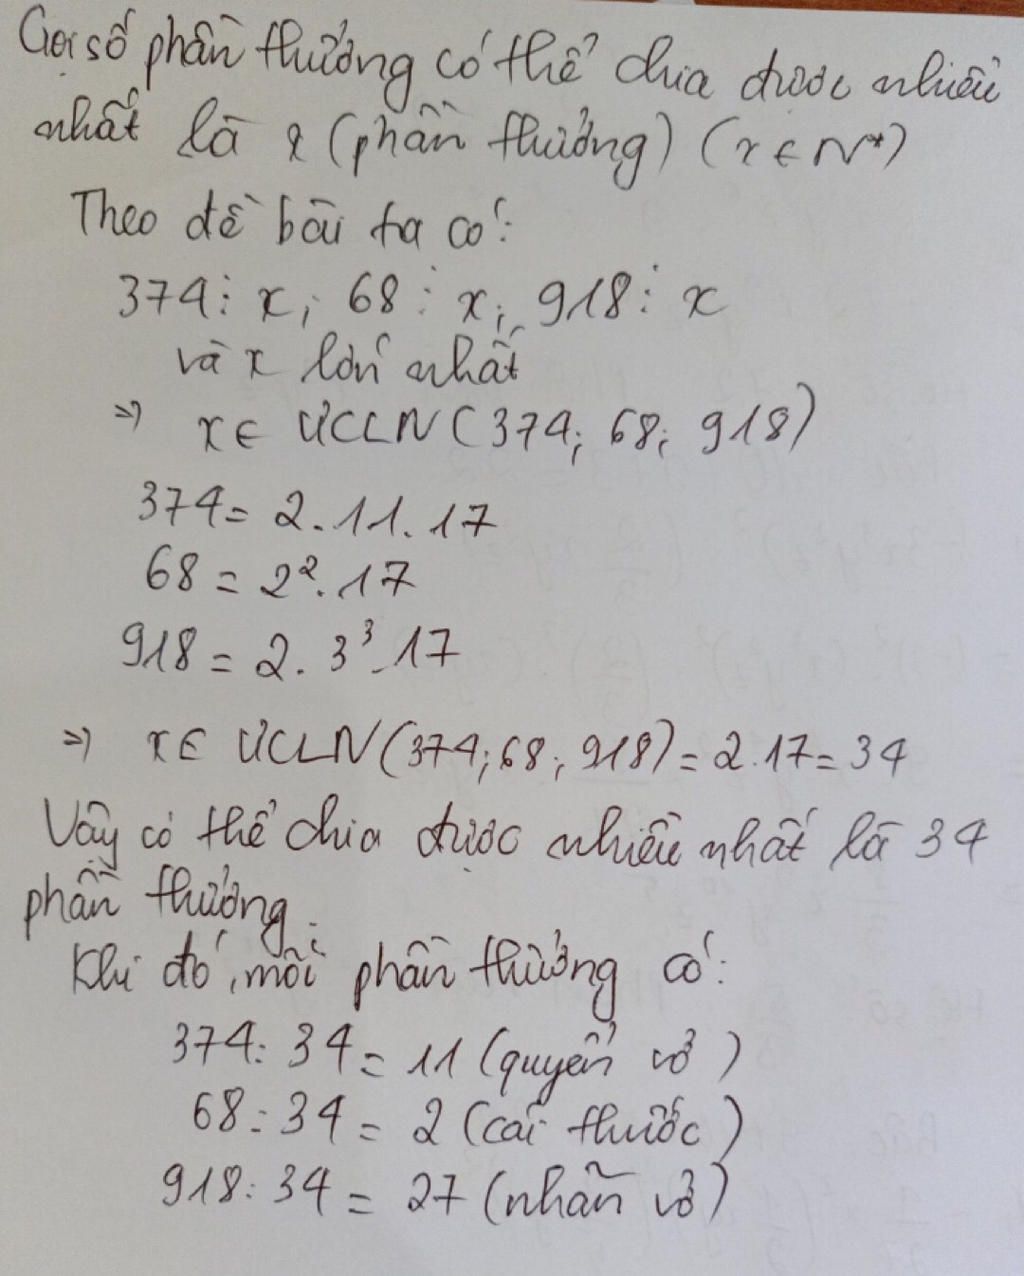 Gọi số phần thưởng có thể chia được nhiều
nhất là x (phần thưởng) (x ∈ N*)
Theo đề bài ta có:
374 ⋮ x; 68 ⋮ x; 918 ⋮ x
và x lớn nhất
=> x ∈ ƯCLN (374; 68; 918)
374 = 2 . 11 . 17
68 = 2² . 17
918 = 2 . 3³ . 17
=> x ∈ ƯCLN (374; 68; 918) = 2 . 17 = 34
Vậy có thể chia được nhiều nhất là 34
phần thưởng.
Khi đó, mỗi phần thưởng có:
374 : 34 = 11 (quyển vở)
68 : 34 = 2 (cái thước)
918 : 34 = 27 (nhãn vở)